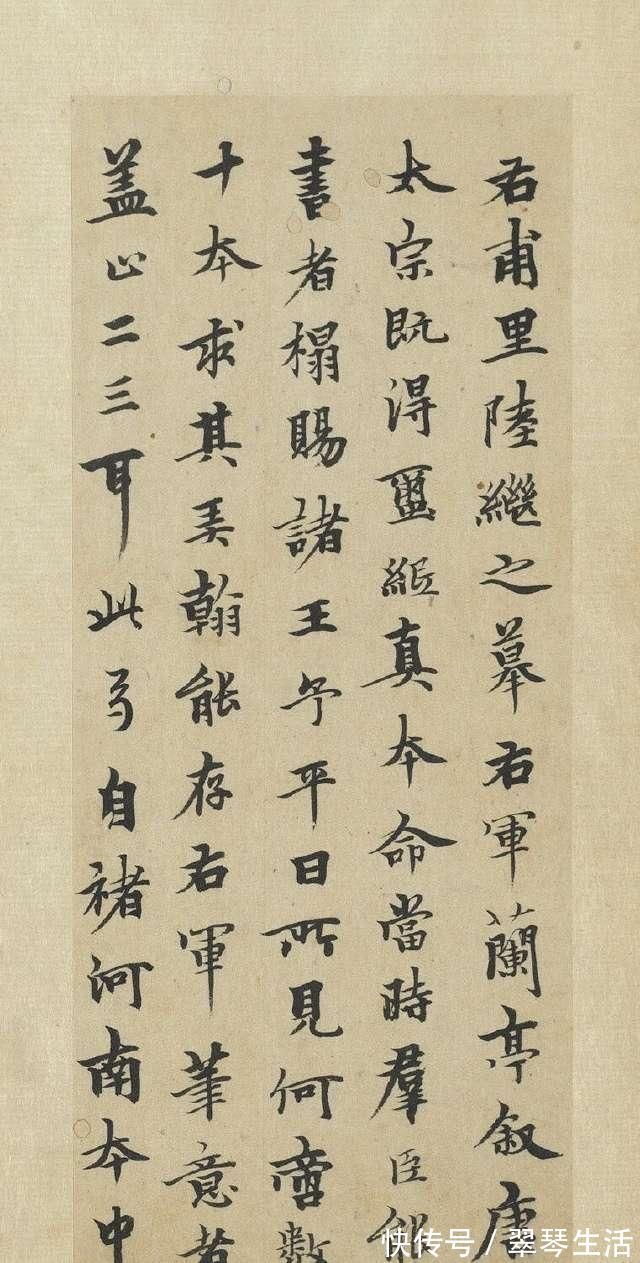 右甫里陸繼之摹右軍蘭亭叙唐
太宗既得蠒紙真本命當時羣臣能
書者榻賜諸王予平日所見何啻數
十本求其美翰能存右軍筆意者
盖止二三耳此為自褚河南本中
快传号/翠琴生活